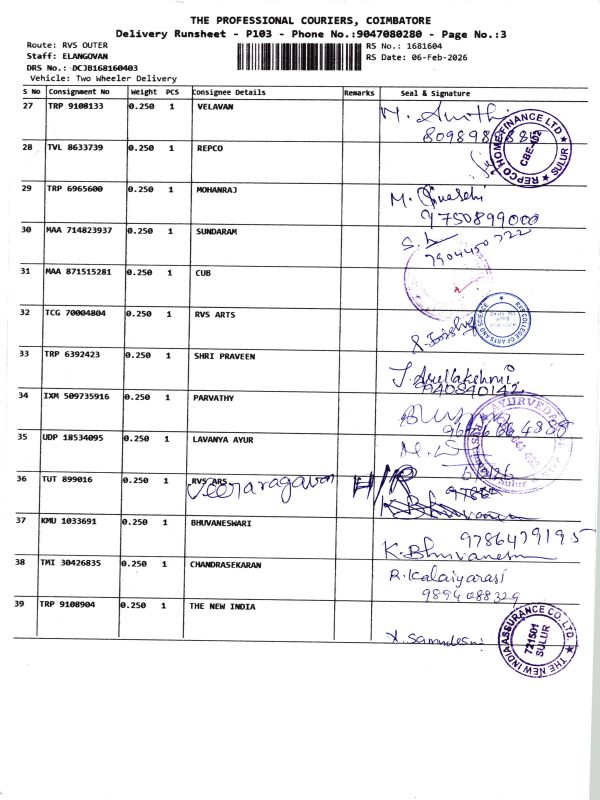 THE PROFESSIONAL COURIERS, COIMBATORE
Delivery Runsheet - P103 - Phone No.:9047080280 - Page No.:3
Route: RVS OUTER
RS No.: 1681604
Staff: ELANGOVAN
RS Date: 06-Feb-2026
DRS No.: DCJB168160403
Vehicle: Two Wheeler Delivery
S No Consignment No Weight PCS Consignee Details Remarks Seal & Signature
27 TRP 9108133 0.250 1 VELAVAN
28 TVL 8633739 0.250 1 REPCO
REPCO HOME FINANCE LTD ★ SULUR ★
CBE-402
29 TRP 6965600 0.250 1 MOHANRAJ M.
9750899000
30 MAA 714823937 0.250 1 SUNDARAM
7904450722
31 MAA 871515281 0.250 1 CUB
32 TCG 70004804 0.250 1 RVS ARTS
RVS COLLEGE OF ARTS AND SCIENCE
33 TRP 6392423 0.250 1 SHRI PRAVEEN J. Arullakshmi
34 IXM 509735916 0.250 1 PARVATHY
35 UDP 18534095 0.250 1 LAVANYA AYUR
36 TUT 899016 0.250 1 RVS ARS
Veeraragavan H/R
37 KMU 1033691 0.250 1 BHUVANESWARI
9786479195
K. Bhuvaneswari
38 TMI 30426835 0.250 1 CHANDRASEKARAN R. Kalaiyarasi
9894088329
39 TRP 9108904 0.250 1 THE NEW INDIA
THE NEW INDIA ASSURANCE CO. LTD.
721501
SULUR